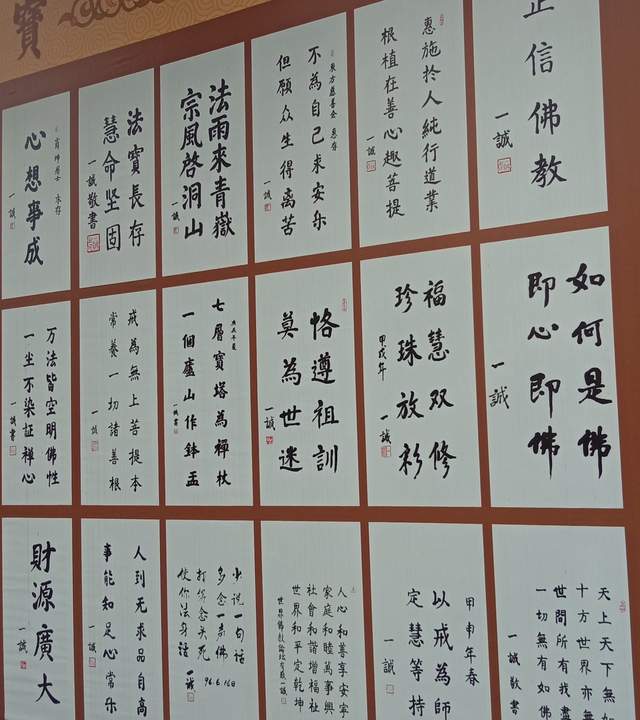 寶
心想事成
一誠
法寶長存
慧命坚固
一誠敬書
法雨來青嶽
宗風啓洞山
一誠
东方慈善会 惠存
不為自己求安乐
但愿众生得离苦
一誠
惠施於人純行道業
根植在善心趣菩提
一誠
正信佛教
一誠
万法皆空明佛性
一尘不染証禅心
一誠書
戒為無上菩提本
常養一切諸善根
一誠
七層寶塔為禪杖
一個廬山作鉢盂
一誠書
恪遵祖訓
莫為世迷
一誠
福慧双修
珍珠放彩
甲戌年 一誠
如何是佛
即心即佛
一誠
財源廣大
一誠
人到无求品自高
事能知足心常乐
一誠
小说一句话
多念一声佛
打得念头死
使你法身活
一誠 96.6.16日
人心和善享安寧
家庭和睦萬事興
社會和諧增福祉
世界和平定乾坤
世界佛教論坛有感一誠
甲申年春
以戒為師
定慧等持
一誠
天上天下無如
十方世界亦無
世間所有我
一切無有如佛
一誠敬書